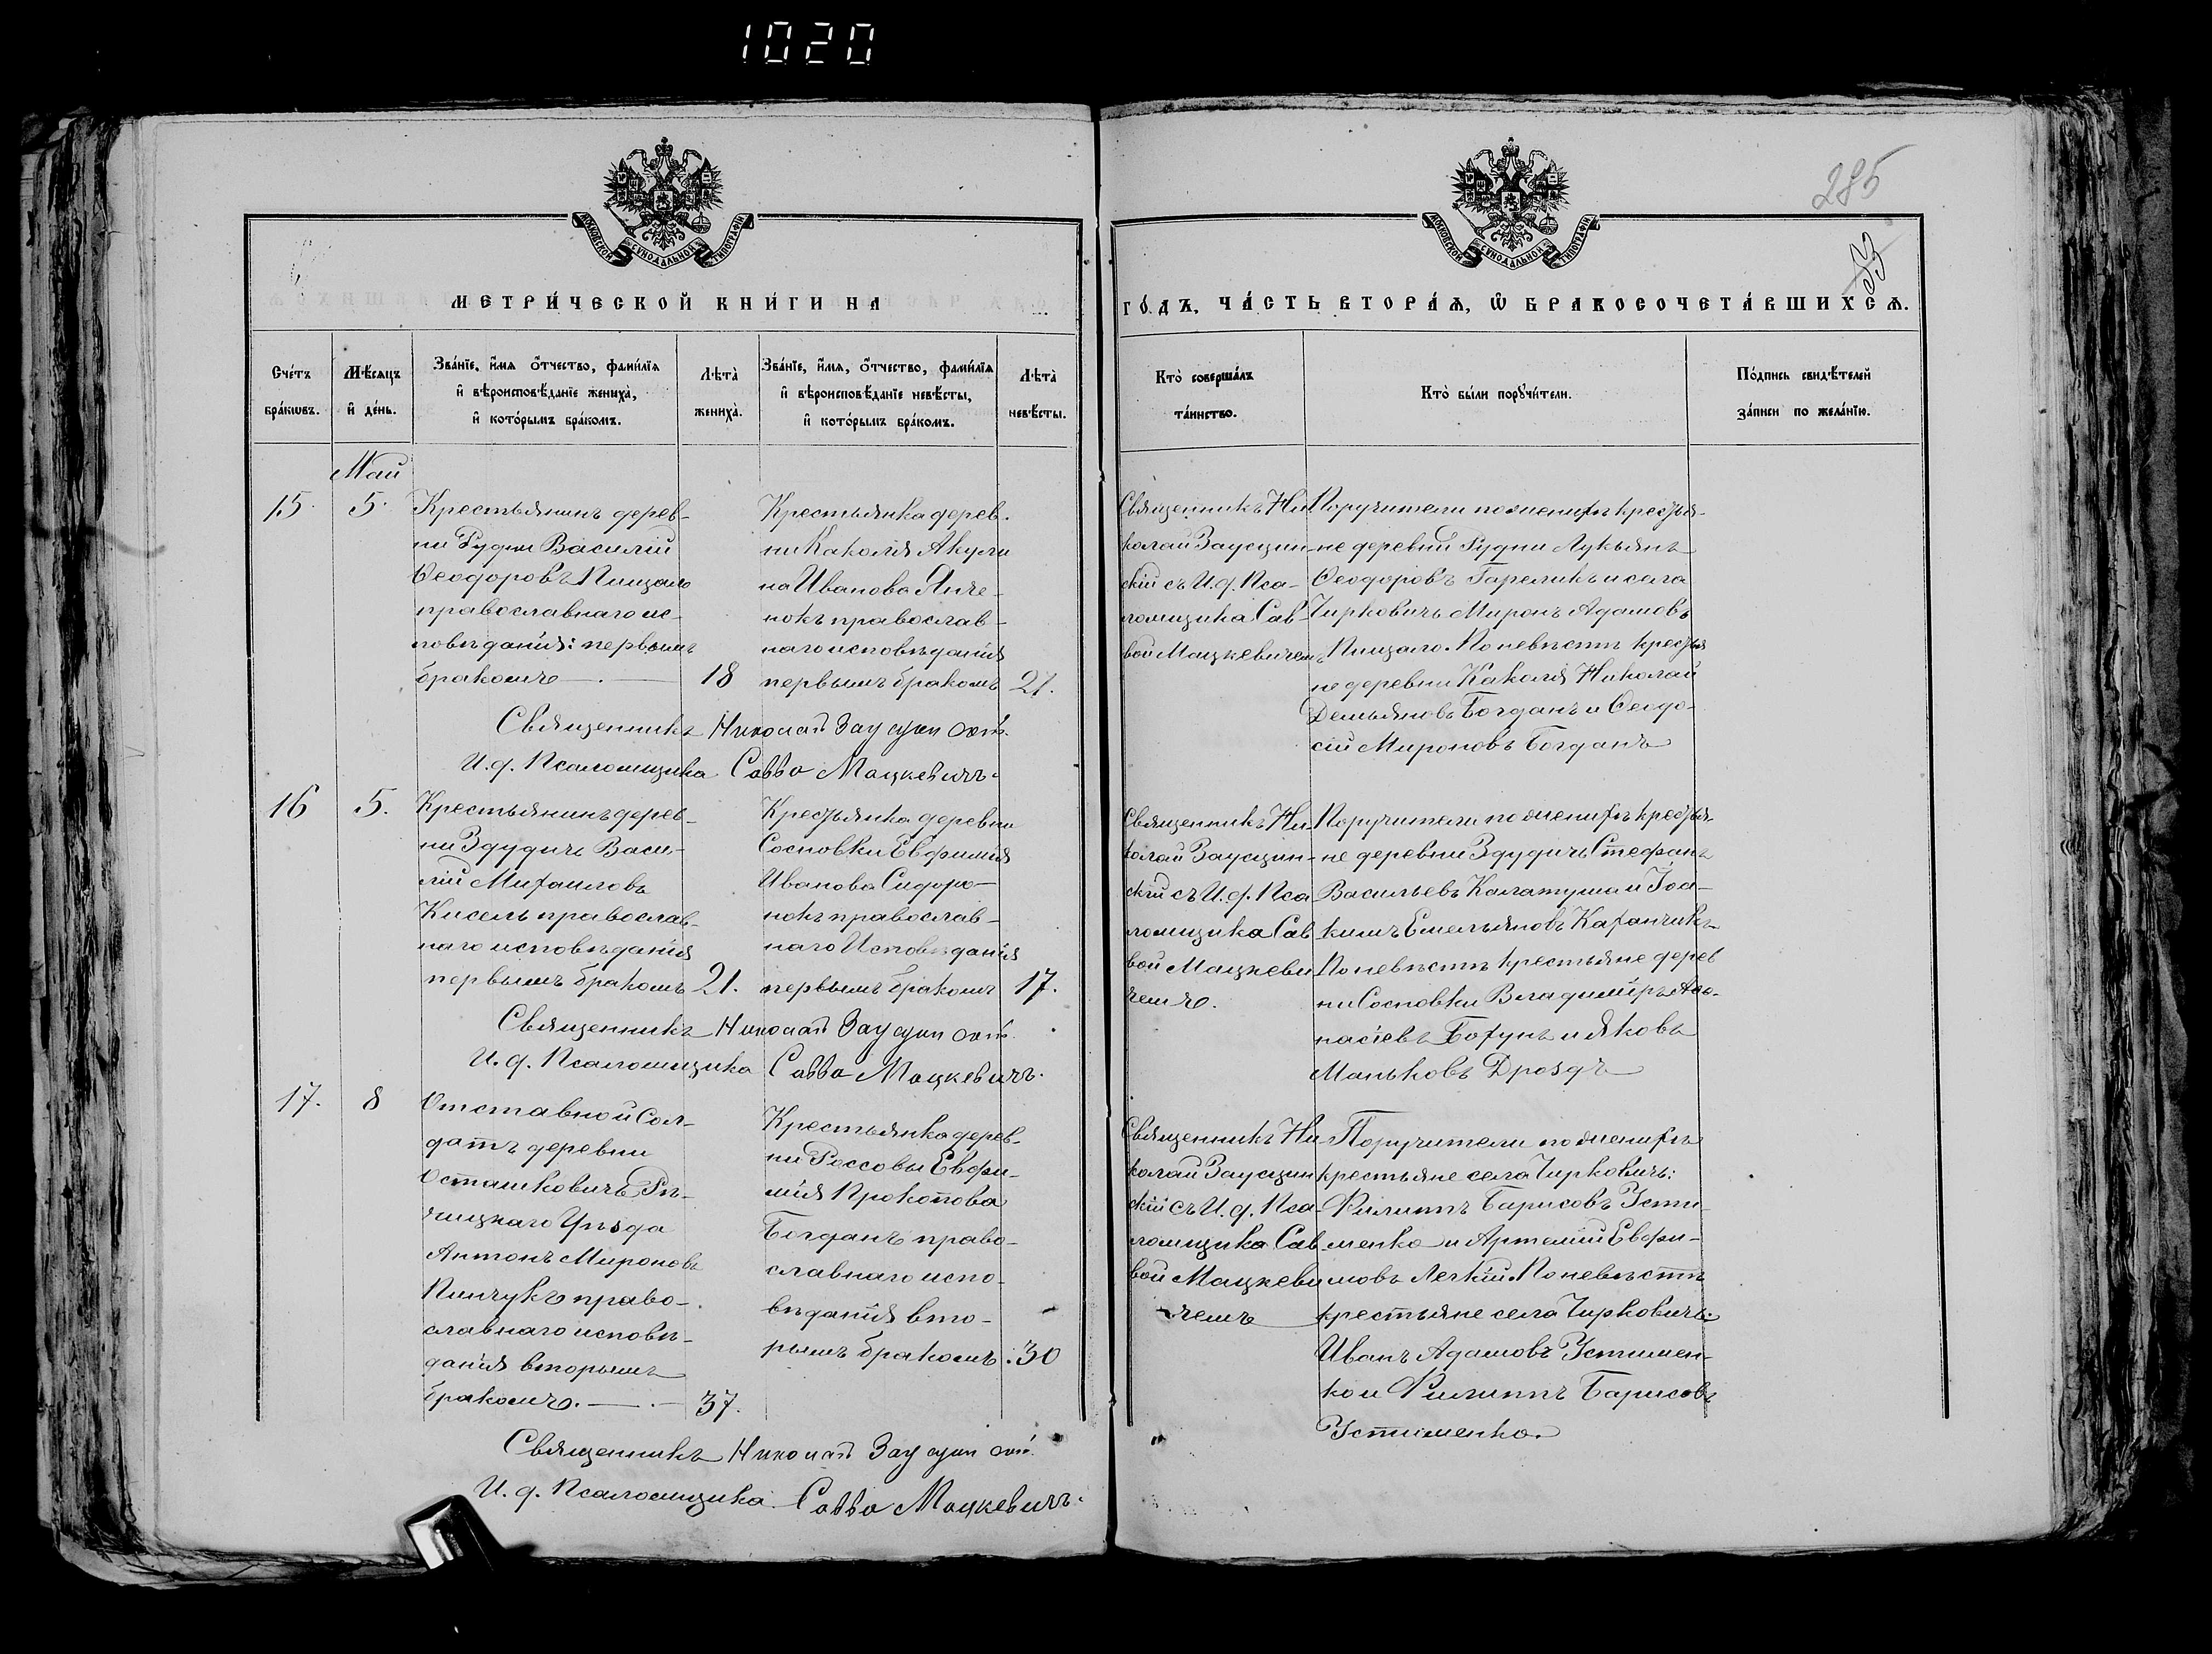 1020
МОСКОВСКОЙ СѴНОДАЛЬНОЙ ТИПОГРАФІИ
МЕТРИ́ЧЕСКОЙ КНИ́ГИ НА
Сче́тъ бра́ковъ.
Мѣ́сяцъ и҆ де́нь.
Зва́нїе, и҆́мя ѻ҆́тчество, фами́лїя
и҆ вѣроисповѣ́данїе жениха̀,
и҆ кото́рымъ бра́комъ.
Лѣта̀ жениха̀.
Зва́нїе, и҆́мя, ѻ҆́тчество, фами́лїя
и҆ вѣроисповѣ́данїе невѣ́сты,
и҆ кото́рымъ бра́комъ.
Лѣта̀ невѣ́сты.
Май
15. 5.
Крестьянинъ дерев-
ни Рудни Василій
Ѳеодоровъ Пищало
православнаго ис-
повѣданія: первымъ
бракомъ 18
Крестьянка дерев.
ни Каколя Акули
на Иванова Янче-
нокъ православ-
наго исповѣданія
первымъ бракомъ 21.
Священникъ Николай Заусцинскій.
И. д. Псаломщика Савва Мацкевичъ.
16 5.
Крестьянинъ дерев-
ни Здудичъ Васи-
лій Михаиловъ
Кисель православ-
наго исповѣданія
первымъ бракомъ 21.
Крестьянка деревни
Сосновки Евфимія
Иванова Сидоро-
нокъ православ-
наго Исповѣданія
первымъ бракомъ 17.
Священникъ Николай Заусцинскій.
И. д. Псаломщика Савва Мацкевичъ.
17. 8
Отставной Сол-
датъ деревни
Осташковичъ Рѣ-
чицкаго Уѣзда
Антонъ Мироновъ
Пинчукъ право-
славнаго исповѣ-
данія вторымъ
бракомъ. 37.
Крестьянка дерев-
ни Россовы Евфи-
мія Прокопова
Богданъ право-
славнаго испо-
вѣданія вто-
рымъ бракомъ. 30
Священникъ Николай Заусцинскій.
И. д. Псаломщика Савва Мацкевичъ.
285
МОСКОВСКОЙ СѴНОДАЛЬНОЙ ТИПОГРАФІИ
53
ГО́ДЪ, ЧА́СТЬ ВТОРА́Я, Ѡ҆ БРАКОСОЧЕТА́ВШИХСЯ.
Кто̀ соверша́лъ
та́инство.
Кто̀ бы́ли порꙋчи́тели.
По́дпись свидѣ́телей
за́писи по жела́нїю.
Священникъ Ни-
колай Заусцин-
скій съ И. д. Пса-
ломщика Сав-
вой Мацкевичемъ
Поручители по женихѣ крестья-
не деревни Рудни Лукьянъ
Ѳеодоровъ Гареликъ и села
Чирковичъ Миронъ Адамовъ
Пищало. По невѣстѣ крестья
не деревни Каколя Николай
Демьяновъ Богданъ и Ѳеодо-
сій Мироновъ Богданъ
Священникъ Ни-
колай Заусцин-
скій съ И. д. Пса
ломщика Сав
вой Мацкеви
чемъ.
Поручители по женихѣ крестья-
не деревни Здудичъ Стефанъ
Васильевъ Калатуша и Іоа-
кимъ Емельяновъ Каханчикъ
По невѣстѣ крестьяне дерев
ни Сосновки Владиміръ Аѳа-
насіевъ Бохунъ и Яковъ
Маньковъ Дроздъ
Священникъ Ни-
колай Заусцин
скій съ И. д. Пса-
ломщика Сав
вой Мацкеви
чемъ
Поручители по женихѣ
крестьяне села Чирковичъ:
Филиппъ Барисовъ Усти-
менко и Артемій Евфи-
мовъ Легкій. По невѣстѣ
крестьяне села Чирковичъ:
Иванъ Адамовъ Устимен-
ко и Филиппъ Барисовъ
Устименко.